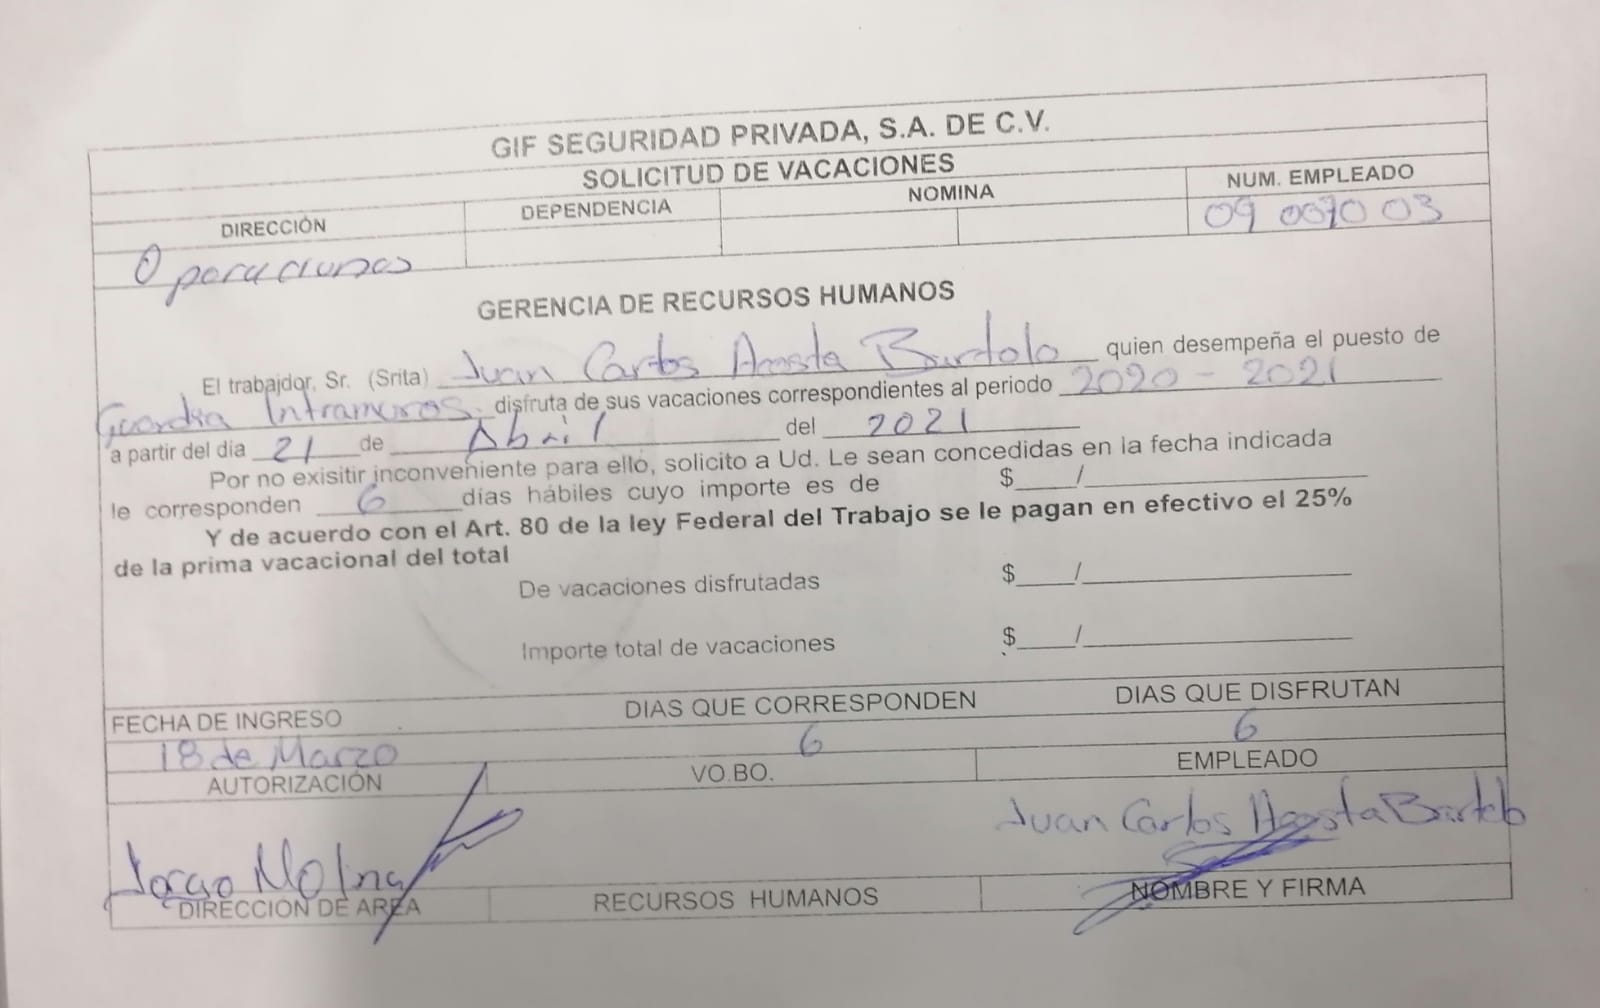 GIF SEGURIDAD PRIVADA, S.A. DE C.V.
SOLICITUD DE VACACIONES
DIRECCIÓN DEPENDENCIA NOMINA NUM. EMPLEADO
Operaciones 09 007003
GERENCIA DE RECURSOS HUMANOS
El trabajdor, Sr. (Srita) Juan Carlos Acosta Bartolo quien desempeña el puesto de
Guardia Intramuros. disfruta de sus vacaciones correspondientes al periodo 2020 - 2021
a partir del día 21 de Abril del 2021
Por no exisitir inconveniente para ello, solicito a Ud. Le sean concedidas en la fecha indicada
le corresponden 6 días hábiles cuyo importe es de $____/____
Y de acuerdo con el Art. 80 de la ley Federal del Trabajo se le pagan en efectivo el 25%
de la prima vacacional del total
De vacaciones disfrutadas $____/____
Importe total de vacaciones $____/____
FECHA DE INGRESO DIAS QUE CORRESPONDEN DIAS QUE DISFRUTAN
18 de Marzo 6 6
AUTORIZACIÓN VO.BO. EMPLEADO
Jorge Molina Juan Carlos Acosta Bartolo
DIRECCIÓN DE AREA RECURSOS HUMANOS NOMBRE Y FIRMA